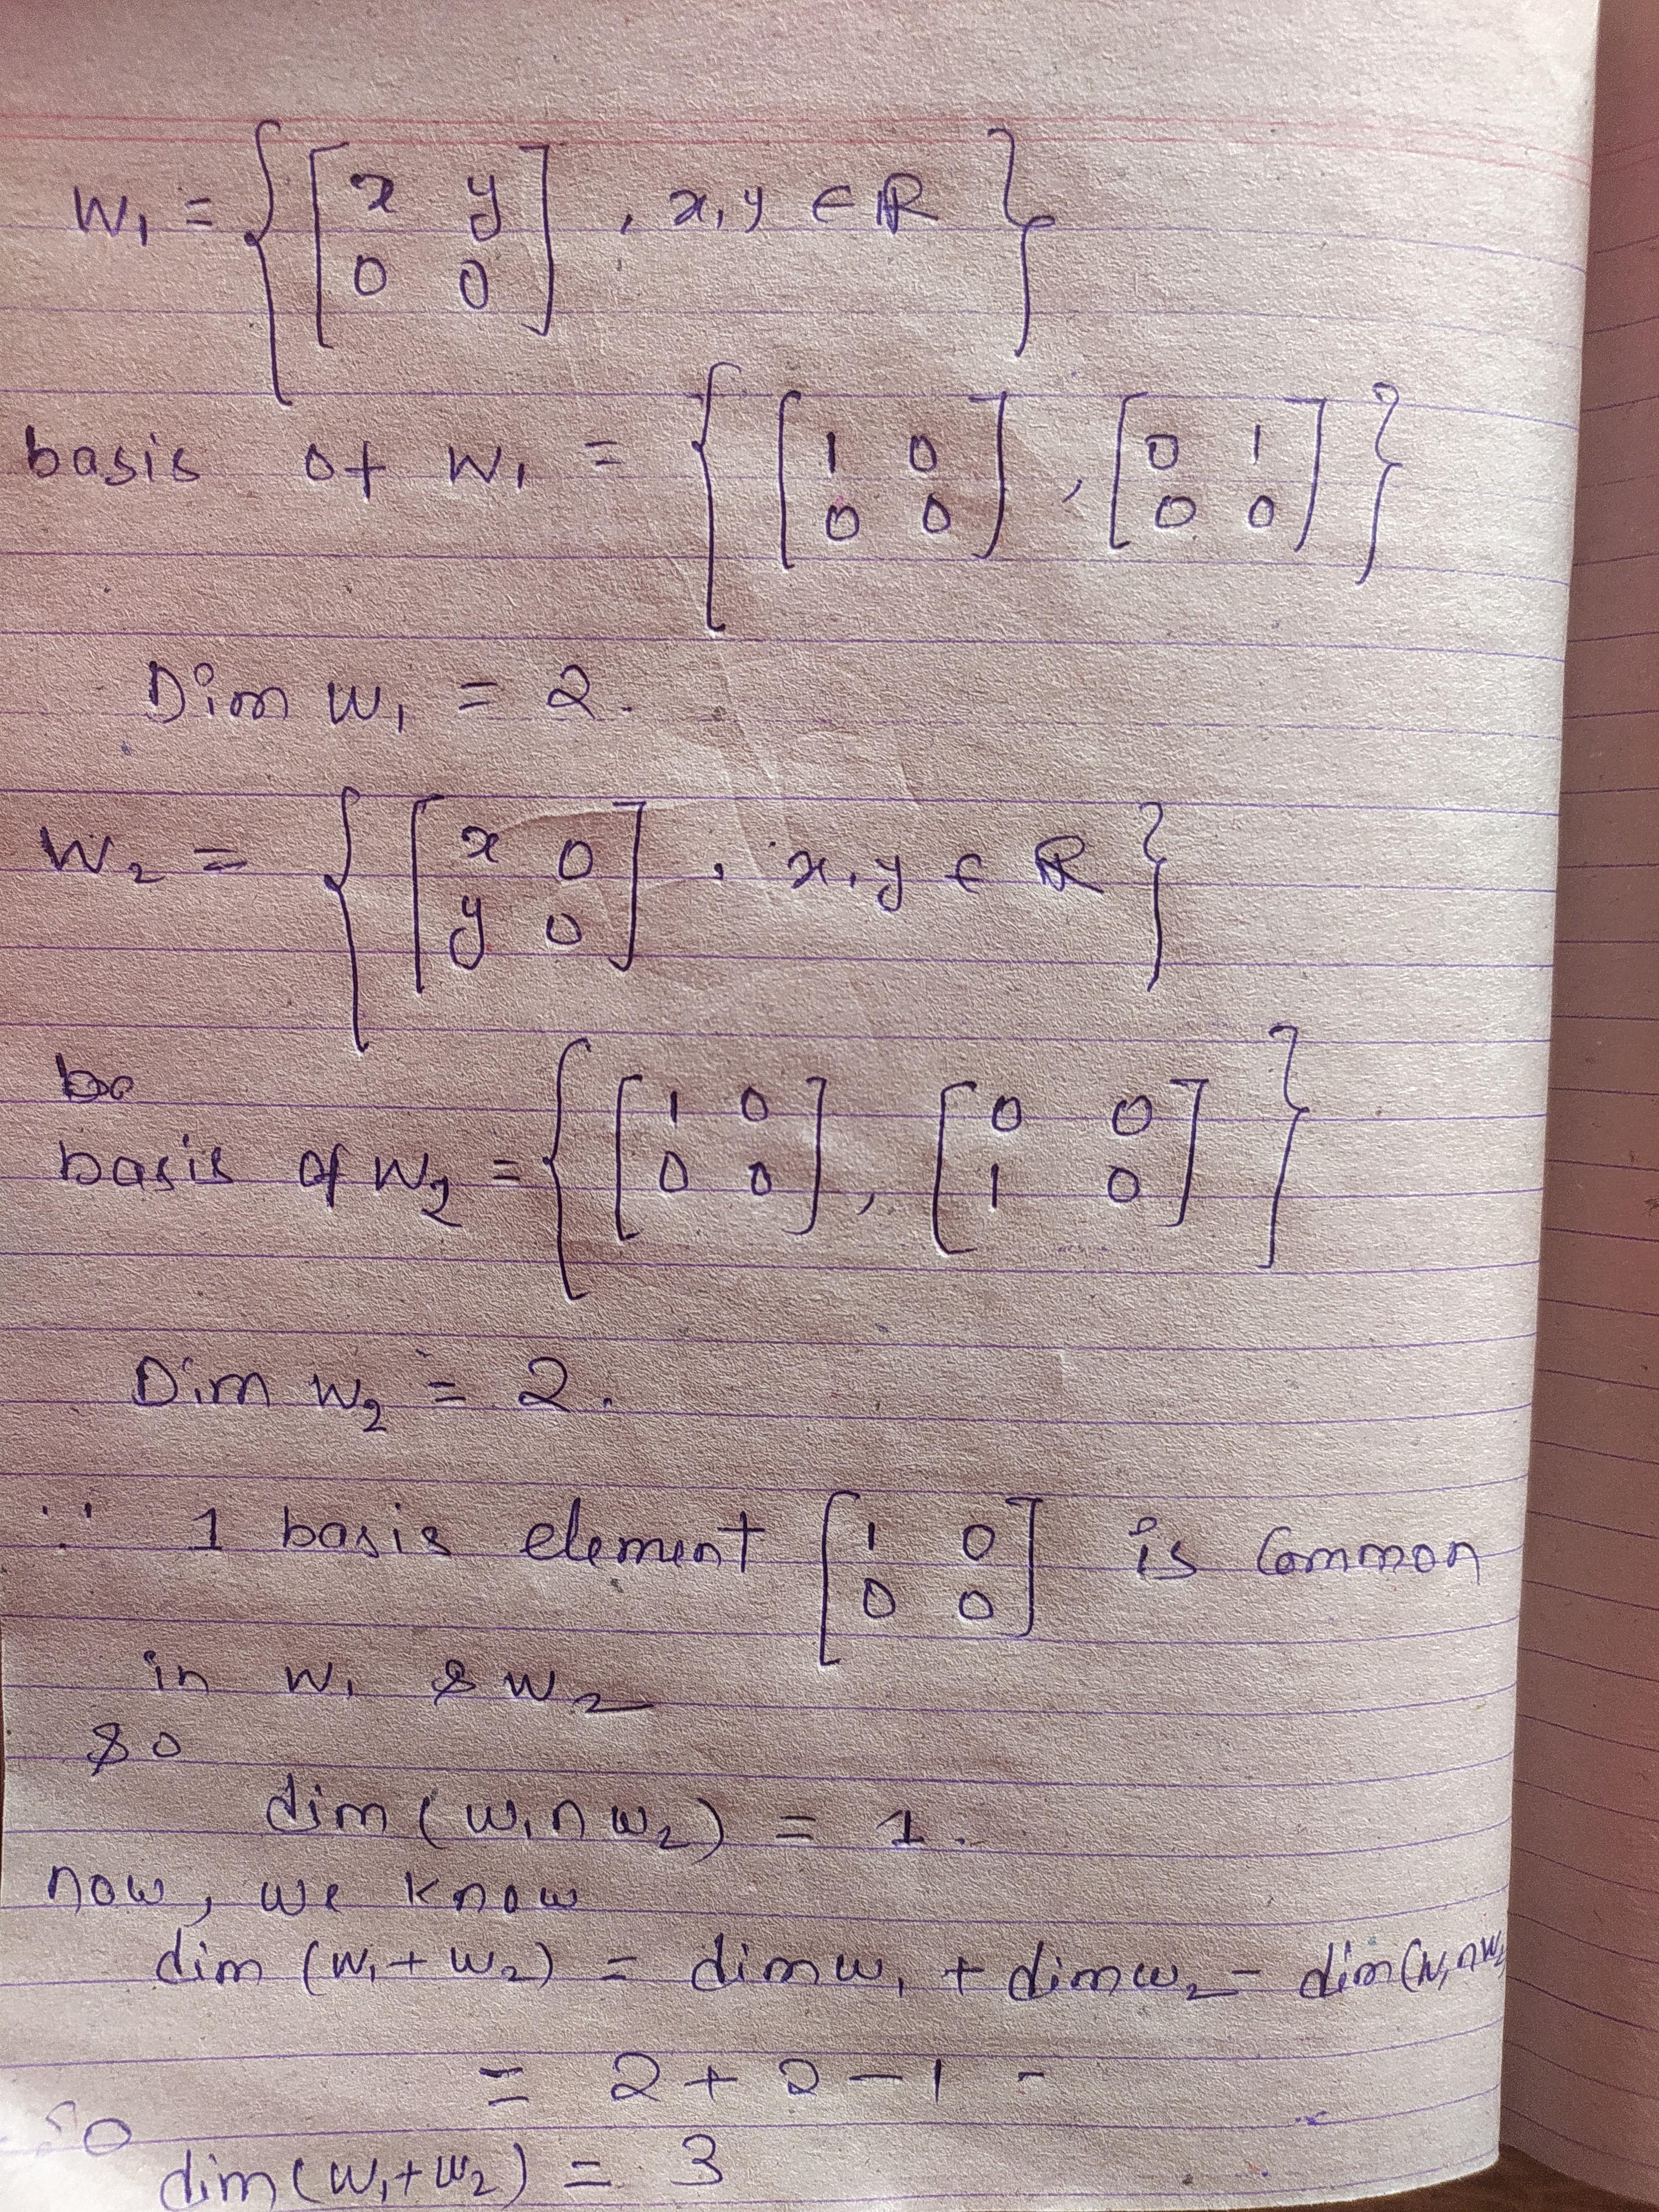 W₁ = { [ x y ; 0 0 ] , x, y ∈ ℝ }
basis of W₁ = { [ 1 0 ; 0 0 ] , [ 0 1 ; 0 0 ] }
Dim W₁ = 2.
W₂ = { [ x 0 ; y 0 ] , x, y ∈ ℝ }
basis of W₂ = { [ 1 0 ; 0 0 ] , [ 0 0 ; 1 0 ] }
Dim W₂ = 2.
∵ 1 basis element [ 1 0 ; 0 0 ] is Common
in W₁ & W₂
so
dim (W₁ ∩ W₂) = 1.
now, we know
dim (W₁ + W₂) = dim W₁ + dim W₂ - dim (W₁ ∩ W₂
= 2 + 2 - 1 -
so
dim (W₁ + W₂) = 3